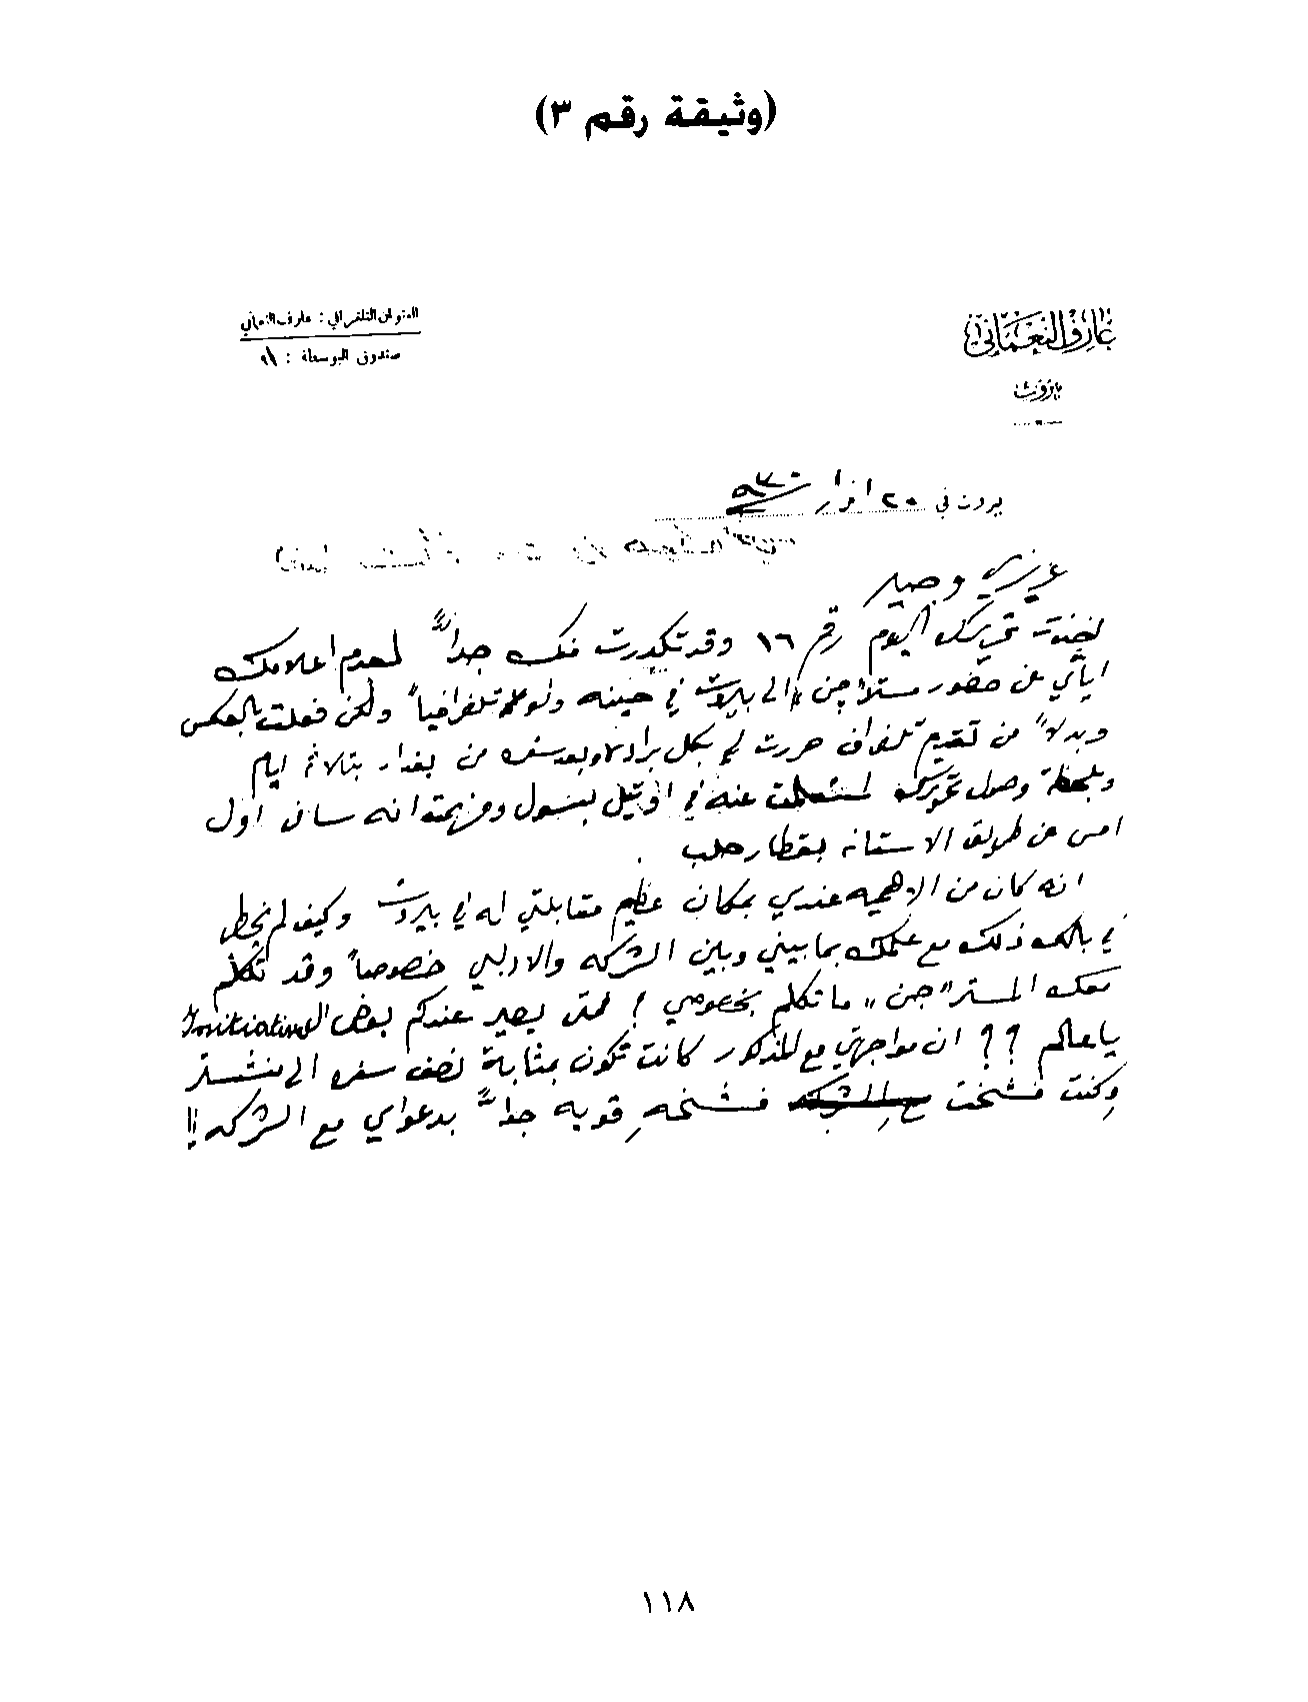 (وثيقة رقم ٣)
عارف النعماني
بيروت
العنوان التلغرافي : عارف النعماني
صندوق البوسطة : ٩١
بيروت في ٢٠ اذار ٩٣٠
عزيزي وجيه
اخذت تحريرك اليوم رقم ١٦ وقد تكدرت منك جداً لعدم اعلامك
اياي عن حضور مستر "جن" الى بيروت في حينه ولو تلغرافياً ولكن فعلت بالعكس
وبدلاً من تقديم تلغراف حررت لي بكل براده وبعد سفره من بغداد بثلاثة ايام
وبلحظة وصول تحريرك استعلمت عنه في اوتيل بسول وفهمت انه سافر اول
امس عن طريق الاستانه بقطار حلب
انه كان من الاهميه عندي بمكان عظيم مقابلتي له في بيروت وكيف لم يخطر
في بالك ذلك مع علمك بما بيني وبين الشركه والادلبي خصوصاً وقد تكلم
معك المستر "جن" ما تكلم بخصوصي ! فمتى يصير عندكم بعض ال Initiative
يا عالم ؟؟ ان مواجهتي مع المذكور كانت تكون بمثابة نصف سفره الى منشستر
وكنت فشخت مع الشركه فشخه قويه جداً بدعواي مع الشركه !!
١١٨